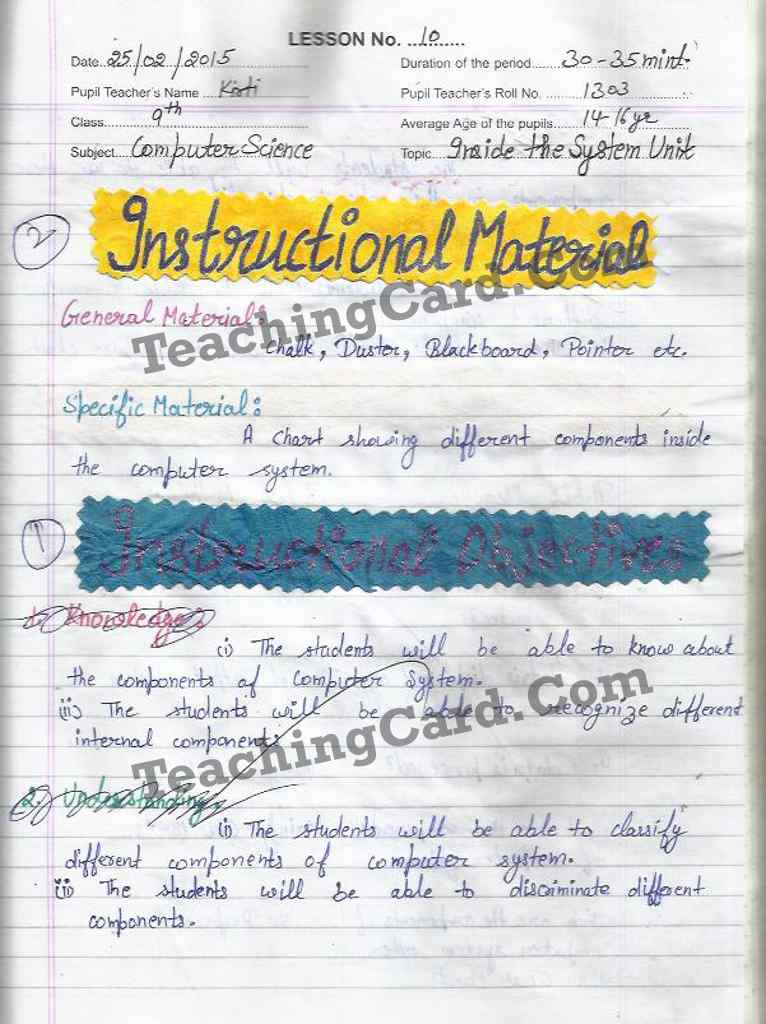 LESSON No. 10
Date 25/02/2015
Duration of the period 30-35 mint.
Pupil Teacher's Name Kirti
Pupil Teacher's Roll No. 1303
Class 9th
Average Age of the pupils 14-16 yr
Subject Computer Science
Topic Inside the System Unit
2 Instructional Material
General Material:
Chalk, Duster, Blackboard, Pointer etc.
TeachingCard.Com
Specific Material:
A chart showing different components inside
the computer system.
1 Instructional Objectives
1. Knowledge:
(i) The students will be able to know about
the components of Computer System.
(ii) The students will be able to recognize different
internal components
TeachingCard.Com
2. Understanding:
(i) The students will be able to classify
different components of computer system.
(ii) The students will be able to discriminate different
components.